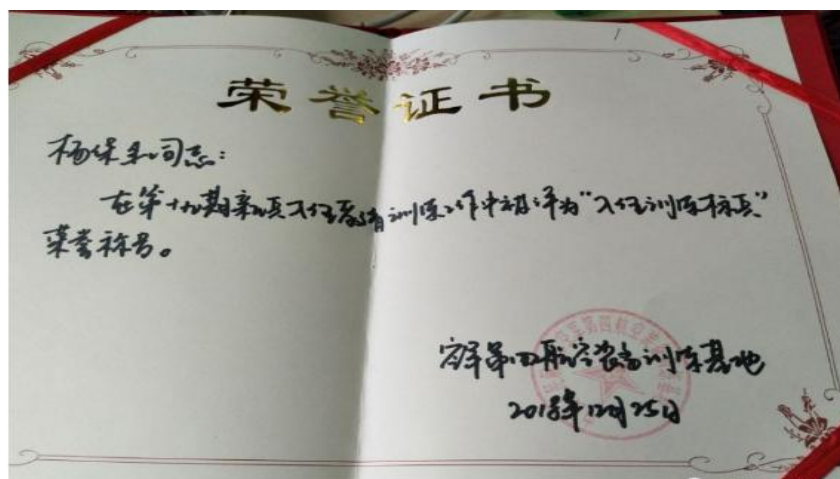 荣誉证书
杨保, 同志:
在第十九期新兵入伍教育训练工作中被评为“入伍训练标兵”
荣誉称号。
空军第四航空装备训练基地
2018年12月25日